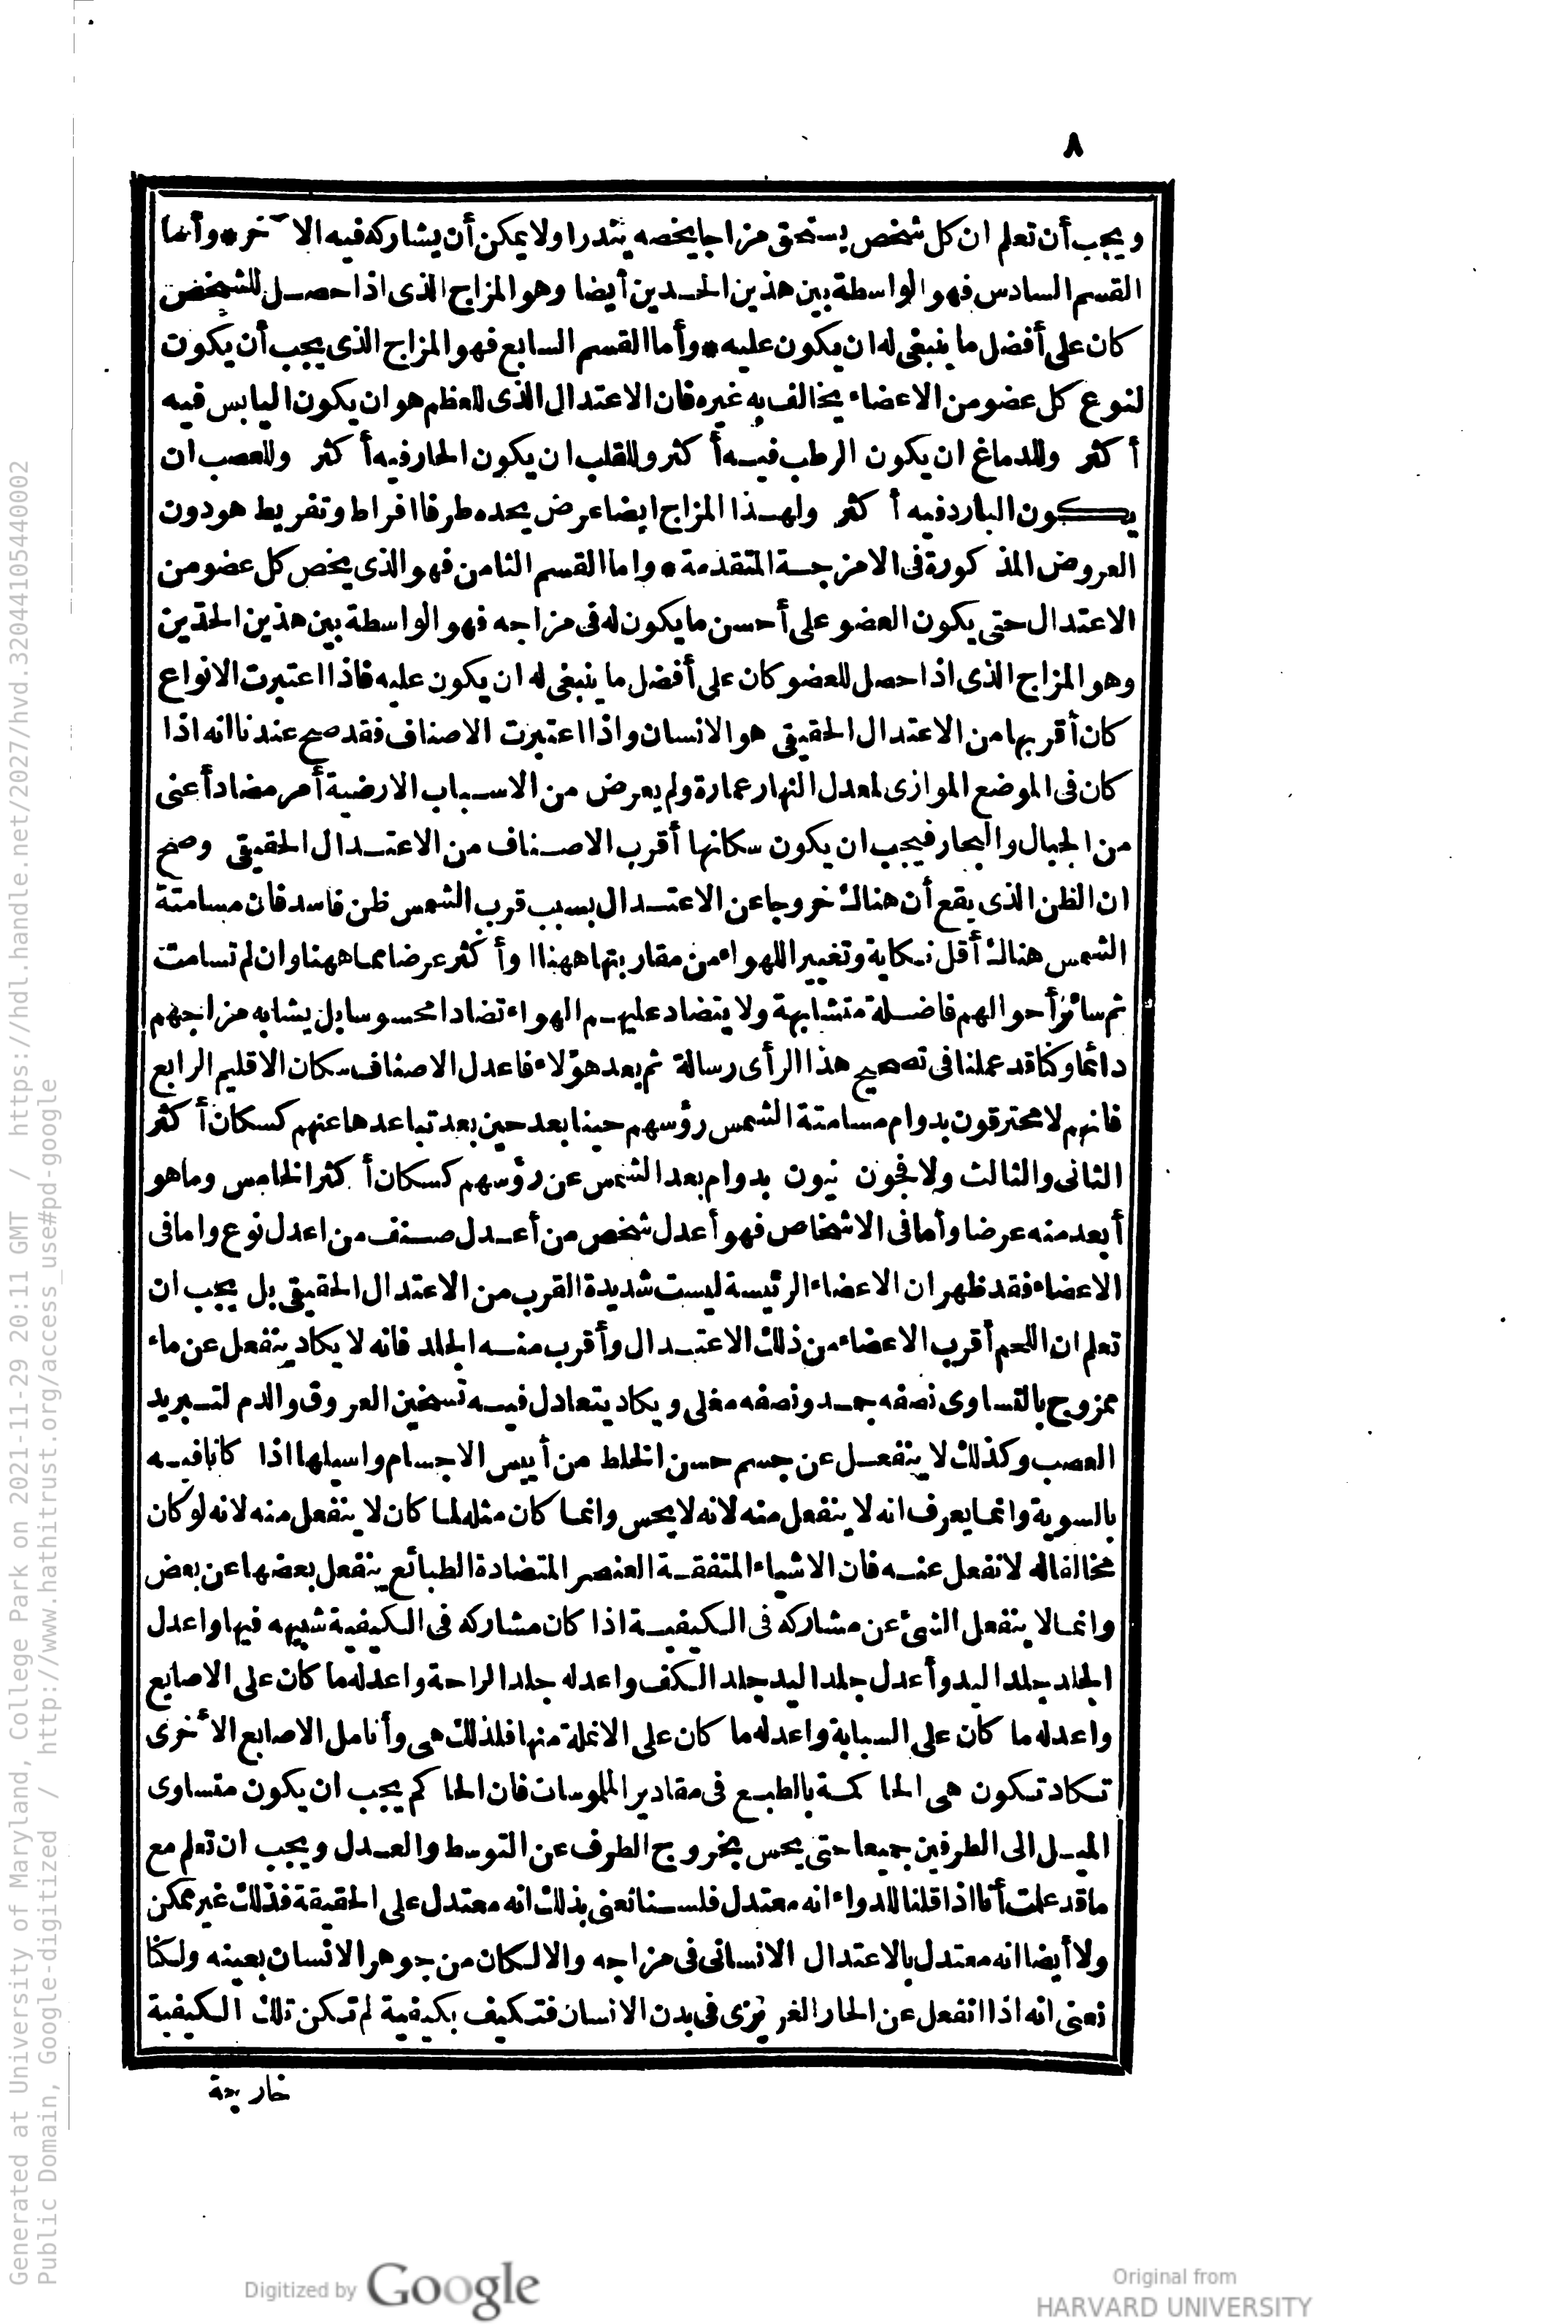 ٨
ويجب أن تعلم ان كل شخص يستحق مزاجا يخصه يندر اولا يمكن أن يشاركه فيه الا ٓخر * وأما
القسم السادس فهو الواسطة بين هذين الحدين أيضا وهو المزاج الذى اذا حصل للشخص
كان على أفضل ما ينبغى له ان يكون عليه * وأما القسم السابع فهو المزاج الذى يجب أن يكون
لنوع كل عضو من الاعضاء يخالف به غيره فان الاعتدال الذى للعظم هو ان يكون اليابس فيه
أكثر وللدماغ ان يكون الرطب فيه أكثر وللقلب ان يكون الحار فيه أكثر وللعصب ان
يكون البارد فيه أكثر ولهذا المزاج ايضا عرض يحده طرفا افراط وتفريط هو دون
العروض المذكورة فى الامزجة المتقدمة * واما القسم الثامن فهو الذى يخص كل عضو من
الاعتدال حتى يكون العضو على أحسن ما يكون له فى مزاجه فهو الواسطة بين هذين الحدّين
وهو المزاج الذى اذا حصل للعضو كان على أفضل ما ينبغى له ان يكون عليه فاذا اعتبرت الانواع
كان أقربها من الاعتدال الحقيقى هو الانسان واذا اعتبرت الاصناف فقد صح عندنا انه اذا
كان فى الموضع الموازى لمعدل النهار عمارة ولم يعرض من الاسباب الارضية أمر مضاد أعنى
من الجبال والبحار فيجب ان يكون سكانها أقرب الاصناف من الاعتدال الحقيقى وصح
ان الظن الذى يقع أن هناك خروجا عن الاعتدال بسبب قرب الشمس ظن فاسد فان مسامتة
الشمس هناك أقل نكاية وتغييرا للهواء من مقاربتها ههنا او أكثر عرضا مما ههنا وان لم تسامت
ثم سائر أحوالهم فاضلة متشابهة ولا يتضاد عليهم الهواء تضادا محسوسا بل يشابه مزاجهم
دائما وكنا قد عملنا فى تصحيح هذا الرأى رسالة ثم بعد هؤلاء فاعدل الاصناف سكان الاقليم الرابع
فانهم لا محترقون بدوام مسامتة الشمس رؤسهم حينا بعد حين بعد تباعدها عنهم كسكان أكثر
الثانى والثالث ولا فجون نيون بدوام بعد الشمس عن رؤسهم كسكان أكثر الخامس وما هو
أبعد منه عرضا وأما فى الاشخاص فهو أعدل شخص من أعدل صنف من اعدل نوع واما فى
الاعضاء فقد ظهر ان الاعضاء الرئيسة ليست شديدة القرب من الاعتدال الحقيقى بل يجب ان
تعلم ان اللحم أقرب الاعضاء من ذلك الاعتدال وأقرب منه الجلد فانه لا يكاد ينفعل عن ماء
ممزوج بالتساوى نصفه جمد ونصفه مغلى ويكاد يتعادل فيه تسخين العروق والدم لتبريد
العصب وكذلك لا ينفعل عن جسم حسن الخلط من أيبس الاجسام واسيلها اذا كانا فيه
بالسوية وانما يعرف انه لا ينفعل منه لانه لا يحس وانما كان مثله لما كان لا ينفعل منه لانه لو كان
مخالفا له لانفعل عنه فان الاشياء المتفقة العنصر المتضادة الطبائع ينفعل بعضها عن بعض
وانما لا ينفعل الشئ عن مشاركه فى الكيفية اذا كان مشاركه فى الكيفية شبيهه فيها واعدل
الجلد جلد اليد وأعدل جلد اليد جلد الكف واعدله جلد الراحة واعدله ما كان على الاصابع
واعدله ما كان على السبابة واعدله ما كان على الانملة منها فلذلك هى وأنامل الاصابع الا ٔخرى
تكاد تكون هى الحاكمة بالطبع فى مقادير الملموسات فان الحاكم يجب ان يكون متساوى
الميل الى الطرفين جميعا حتى يحس بخروج الطرف عن التوسط والعدل ويجب ان تعلم مع
ما قد علمت أنا اذا قلنا للدواء انه معتدل فلسنا نعنى بذلك انه معتدل على الحقيقة فذلك غير ممكن
ولا أيضا انه معتدل بالاعتدال الانسانى فى مزاجه والا لكان من جوهر الانسان بعينه ولكنا
نعنى انه اذا انفعل عن الحار الغريزى فى بدن الانسان فتكيف بكيفية لم تكن تلك الكيفية
خارجة
Generated at University of Maryland, College Park on 2021-11-29 20:11 GMT / https://hdl.handle.net/2027/hvd.32044105440002
Public Domain, Google-digitized / http://www.hathitrust.org/access_use#pd-google
Digitized by Google
Original from
HARVARD UNIVERSITY